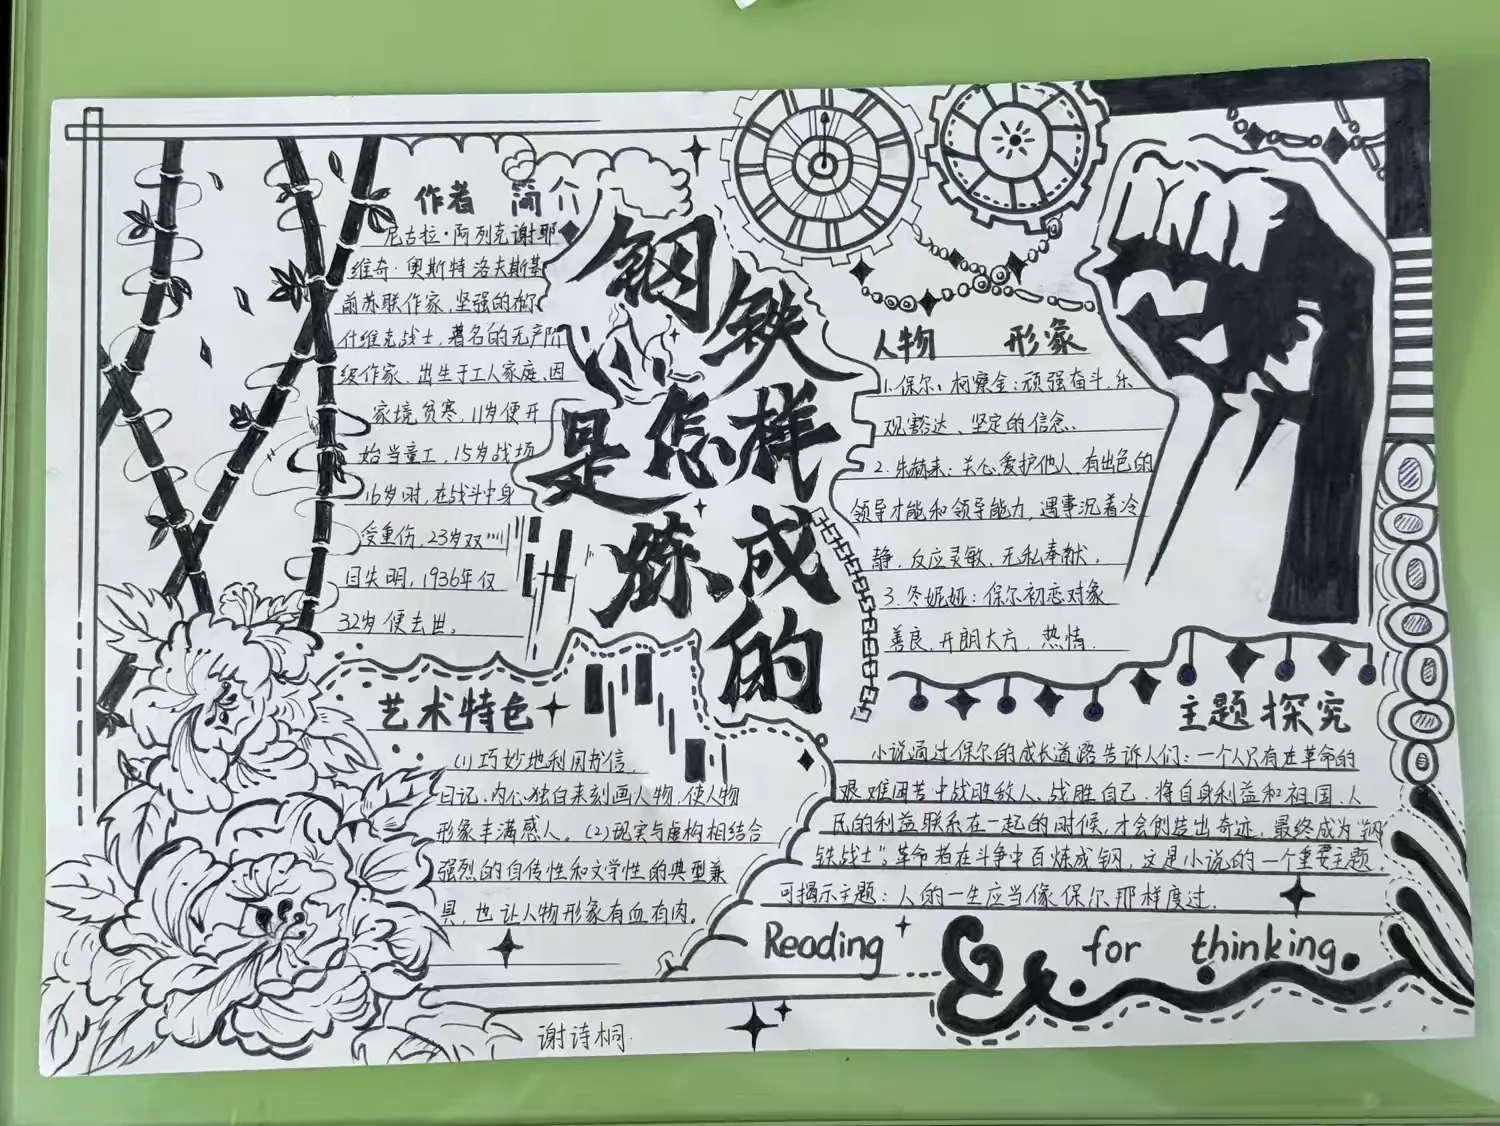 作者 简介
尼古拉·阿列克谢耶
维奇·奥斯特洛夫斯基
前苏联作家,坚强的布尔
什维克战士,著名的无产阶
级作家、出生于工人家庭、因
家境贫寒,11岁便开
始当童工,15岁战场
16岁时,在战斗中身
受重伤,23岁双
目失明,1936年仅
32岁便去世。
钢铁
是怎样
炼成的
人物 形象
1.保尔·柯察金:顽强奋斗,乐
观豁达、坚定的信念、
2.朱赫来:关心爱护他人,有出色的
领导才能和领导能力,遇事沉着冷
静,反应灵敏、无私奉献。
3.冬妮娅:保尔初恋对象
善良、开朗大方、热情.
艺术特色
(1)巧妙地利用书信、
日记、内心独白来刻画人物,使人物
形象丰满感人。(2)现实与虚构相结合
强烈的自传性和文学性的典型兼
具,也让人物形象有血有肉。
主题探究
小说通过保尔的成长道路告诉人们:一个人只有在革命的
艰难困苦中战胜敌人、战胜自己、将自身利益和祖国、人
民的利益联系在一起的时候,才会创造出奇迹,最终成为“钢
铁战士”。革命者在斗争中百炼成钢,这是小说的一个重要主题.
可揭示主题:人的一生应当像保尔那样度过.
Reading for thinking.
谢诗桐.